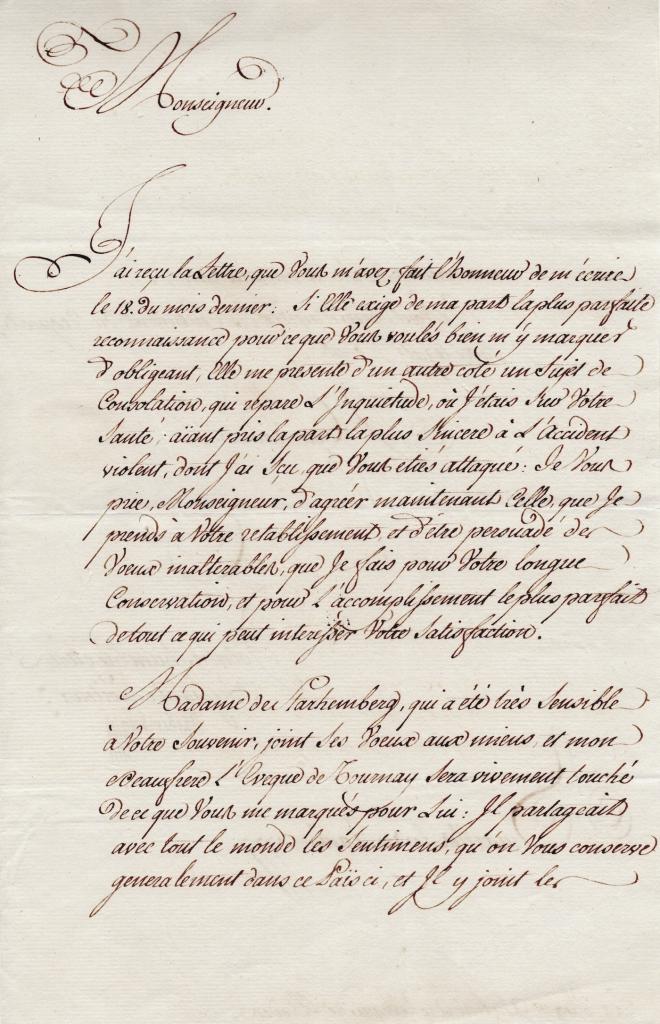 Monseigneur.
J'ai reçu la Lettre, que Vous m'avez fait l'honneur de m'écrire
le 18. du mois dernier: Si Elle exige de ma part la plus parfaite
reconnaissance pour ce que Vous voulés bien m'y marquer
d'obligeant, Elle me presente d'un autre coté un Sujet de
Consolation, qui repare L'Inquietude, où J'étais sur Votre
Santé; aïant pris la part la plus Sincere à L'Accident
violent, dont J'ai Sçu, que Vous etiés attaqué: Je Vous
prie, Monseigneur, d'agréer maintenant Celle, que Je
prends à Votre retablissement, et d'être persuadé des
Voeux inalterables, que Je fais pour Votre longue
Conservation, et pour L'accomplissement le plus parfait
de tout ce qui peut interesser Votre Satisfaction.
Madame de Starhemberg, qui a été très Sensible
à Votre Souvenir, joint Ses Voeux aux miens, et mon
Beaufrere L'Eveque de Tournay Sera vivement touché
de ce que Vous me marqués pour Lui: Il partageait
avec tout le monde les Sentimens, qu'on Vous conserve
generalement dans ce Païs ci, et Il y joint les